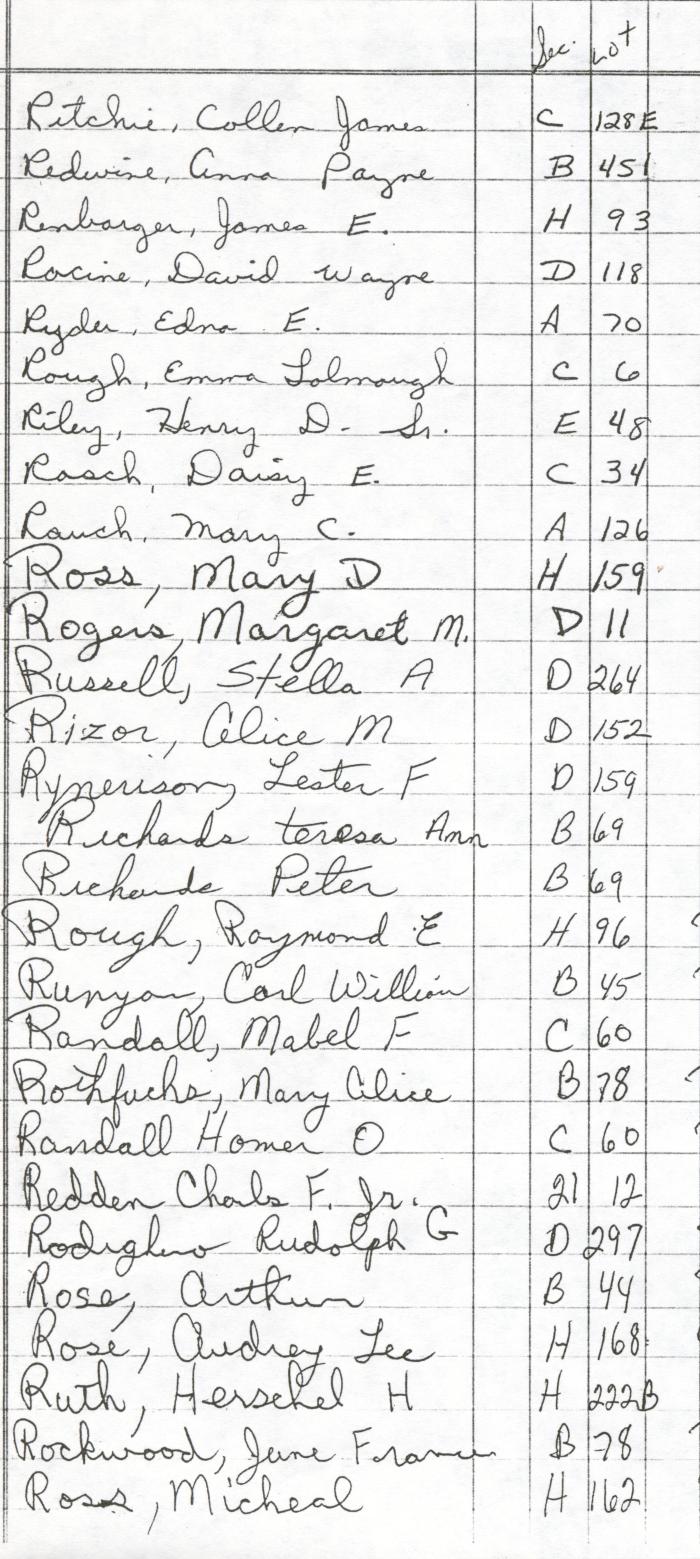 Sec. Lot
Ritchie, Collen James C 128E
Redwine, Anna Payne B 451
Renbarger, James E. H 93
Racine, David Wayne D 118
Ryder, Edna E. A 70
Rough, Emma C 6
Riley, Henry D. Sr. E 48
Rasch, Daisy E. C 34
Rauch, Mary C. A 126
Ross, Mary D H 159
Rogers, Margaret M. D 11
Russell, Stella A D 264
Rizor, Alice M D 152
Rynerson, Lester F D 159
Richards teresa Ann B 69
Richards Peter B 69
Rough, Raymond E H 96
Runyon, Carl William B 45
Randall, Mabel F C 60
Rothfuchs, Mary Alice B 78
Randall Homer O C 60
Redden Charls F. Jr. 21 12
Rudolph G D 297
Rose, Arthur B 44
Rose, Audrey Lee H 168
Ruth, Herschel H H 222B
Rockwood, June B 78
Ross, Micheal H 162